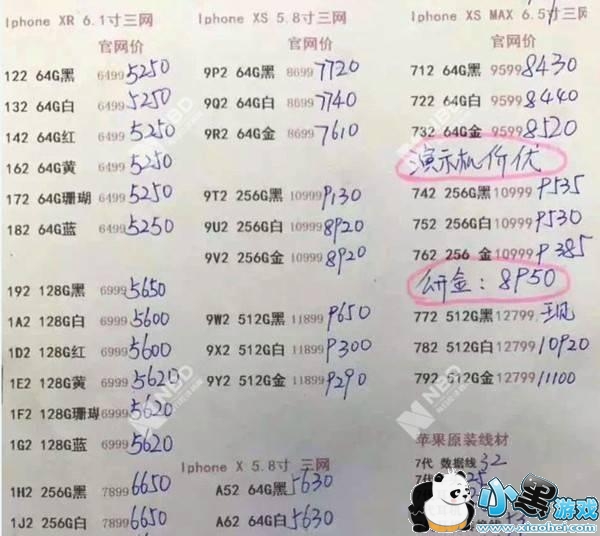 Iphone XR 6.1寸三网
官网价
122 64G黑 6499 5250
132 64G白 6499 5250
142 64G红 6499 5250
162 64G黄 6499 5250
172 64G珊瑚 6499 5250
182 64G蓝 6499 5250
192 128G黑 6999 5650
1A2 128G白 6999 5600
1D2 128G红 6999 5600
1E2 128G黄 6999 5620
1F2 128G珊瑚 6999 5620
1G2 128G蓝 6999 5620
1H2 256G黑 7899 6650
1J2 256G白 7899 6650
Iphone XS 5.8寸三网
官网价
9P2 64G黑 8699 7720
9Q2 64G白 8699 7740
9R2 64G金 8699 7610
9T2 256G黑 10999 9130
9U2 256G白 10999 8920
9V2 256G金 10999 8920
9W2 512G黑 11899 9650
9X2 512G白 11899 9300
9Y2 512G金 11899 9290
Iphone X 5.8寸 三网
A52 64G黑 5630
A62 64G白 5630
Iphone XS MAX 6.5寸三网
官网价
712 64G黑 9599 8430
722 64G白 9599 8440
732 64G金 9599 8520
演示机价优
742 256G黑 10999 9535
752 256G白 10999 9530
762 256 金 10999 9385
研金：8950
772 512G黑 12799 王现
782 512G白 12799 10920
792 512G金 12799 11100
苹果原装线材
7代 数据线 32
7代 25
NBD
小黑游戏
www.xiaohei.com